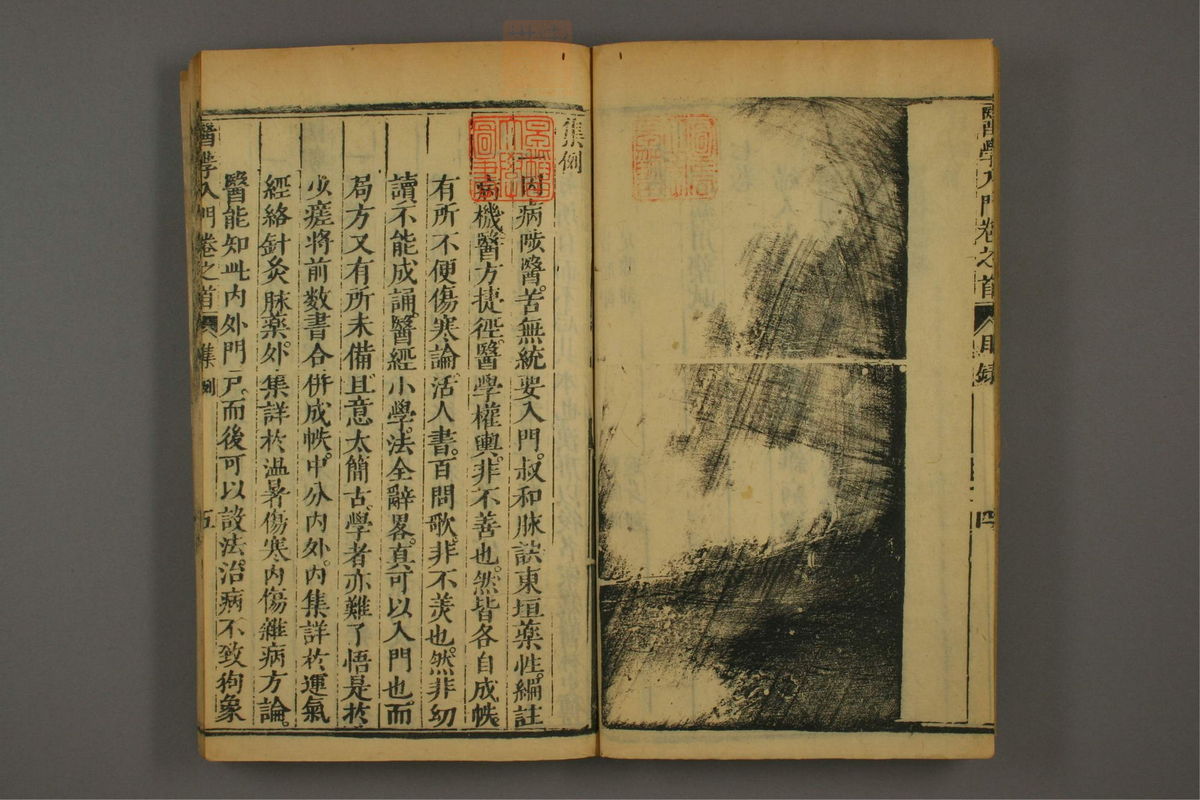 醫學入門卷之首 目錄 四
集例
一因病陟醫。苦無統要入門。叔和脉訣東垣藥性。編註
病機醫方捷徑。醫學權輿。非不善也。然皆各自成帙
有所不便傷寒論。活人書。百問歌。非不羡也。然非幼
讀不能成誦。醫經小學。法全辭畧。真可以入門也而
局方又有所未備。且意太簡古。學者亦難了悟是於
少瘥將前数書合併成帙。中分内外。内集詳於運氣
經絡針灸脉藥。外集詳於温暑傷寒内傷雜病方論。
醫能知此内外門戸。而後可以設法治病不致狥象
醫學入門卷之首 集例 五